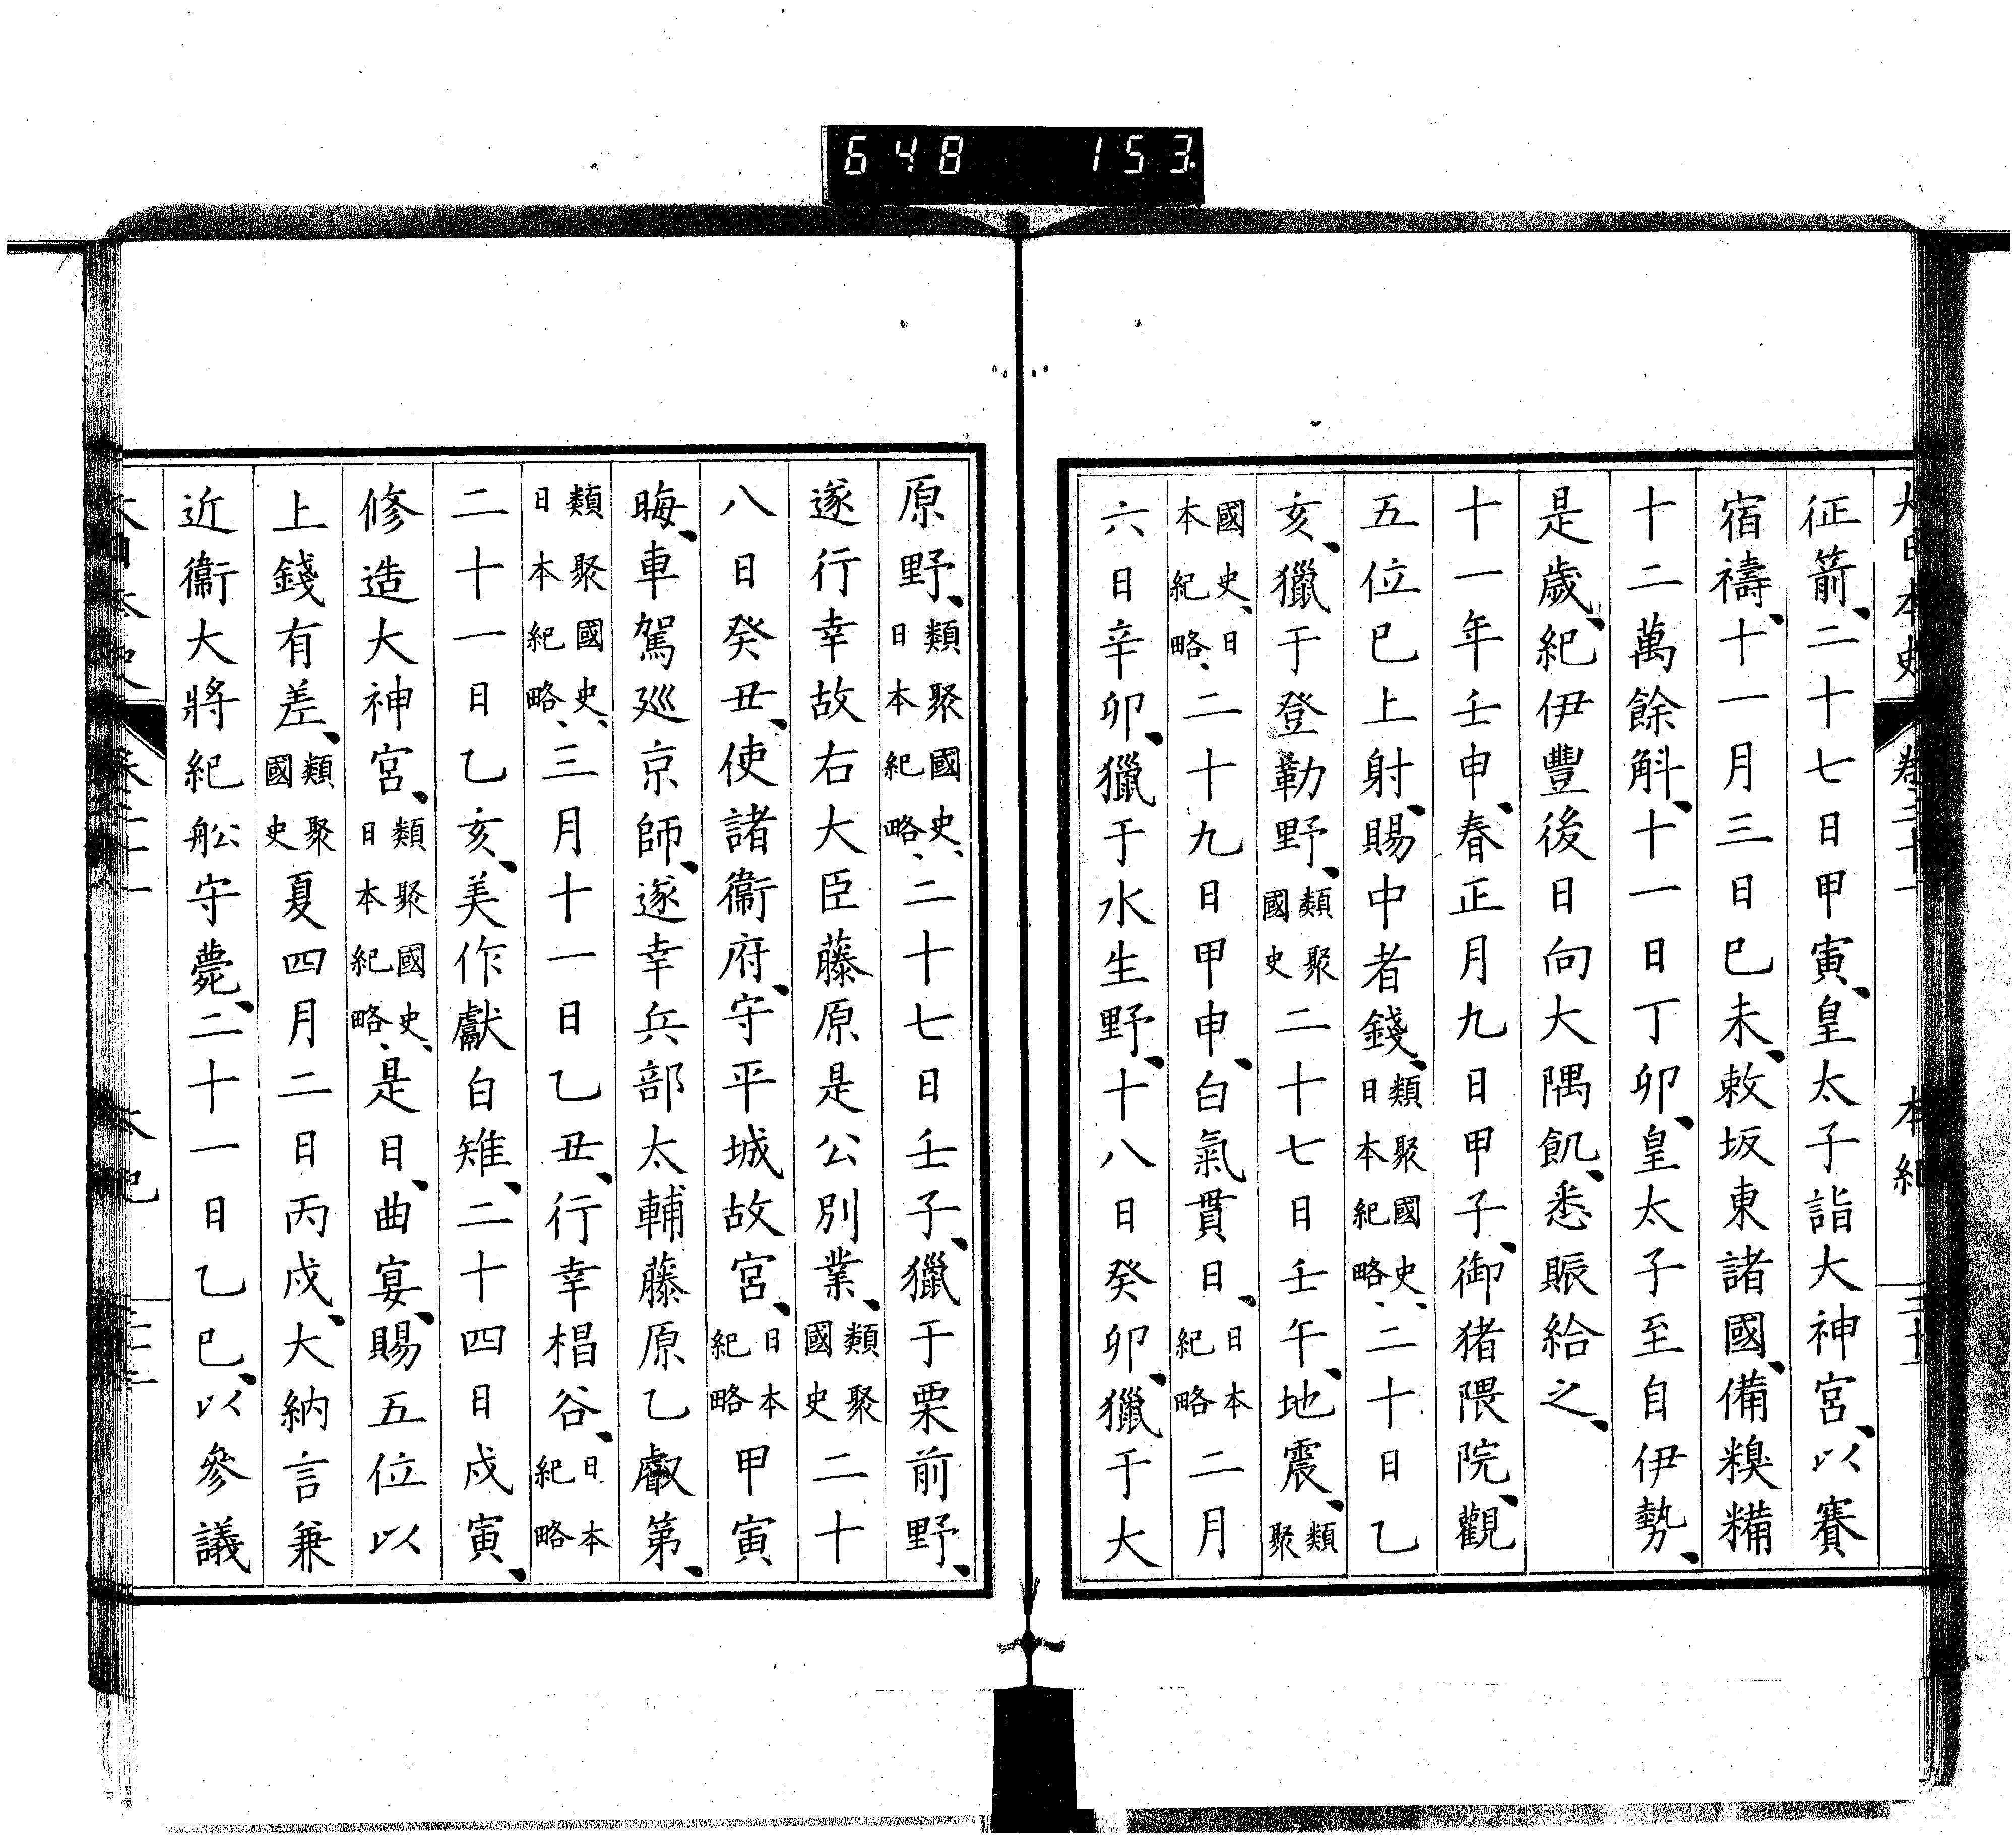 648 153
大日本史 卷二十一 本紀
征箭、二十七日甲寅、皇太子詣大神宮、以賽
宿禱、十一月三日巳未、敕坂東諸國、備糗糒
十二萬餘斛、十一日丁卯、皇太子至自伊勢、
是歲、紀伊豐後日向大隅飢、悉賑給之、
十一年壬申、春正月九日甲子、御猪隈院、觀
五位巳上射、賜中者錢、類聚國史、日本紀略、二十日乙
亥、獵于登勒野、類聚國史二十七日壬午、地震、類聚
國史、日本紀略、二十九日甲申、白氣貫日、日本紀略二月
六日辛卯、獵于水生野、十八日癸卯、獵于大
原野、類聚國史、日本紀略、二十七日壬子、獵于栗前野、
遂行幸故右大臣藤原是公別業、類聚國史二十
八日癸丑、使諸衞府、守平城故宮、日本紀略甲寅
晦、車駕巡京師、遂幸兵部太輔藤原乙叡第、
類聚國史、日本紀略、三月十一日乙丑、行幸椙谷、日本紀略
二十一日乙亥、美作獻白雉、二十四日戊寅、
修造大神宮、類聚國史、日本紀略、是日、曲宴、賜五位以
上錢有差、類聚國史夏四月二日丙戌、大納言兼
近衞大將紀舩守薨、二十一日乙巳、以參議